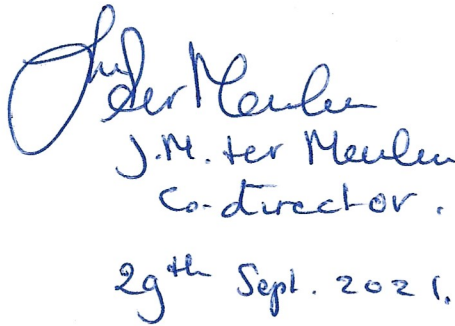 Jm ter Meulen
J.M. ter Meulen
Co-director.
29th Sept. 2021.